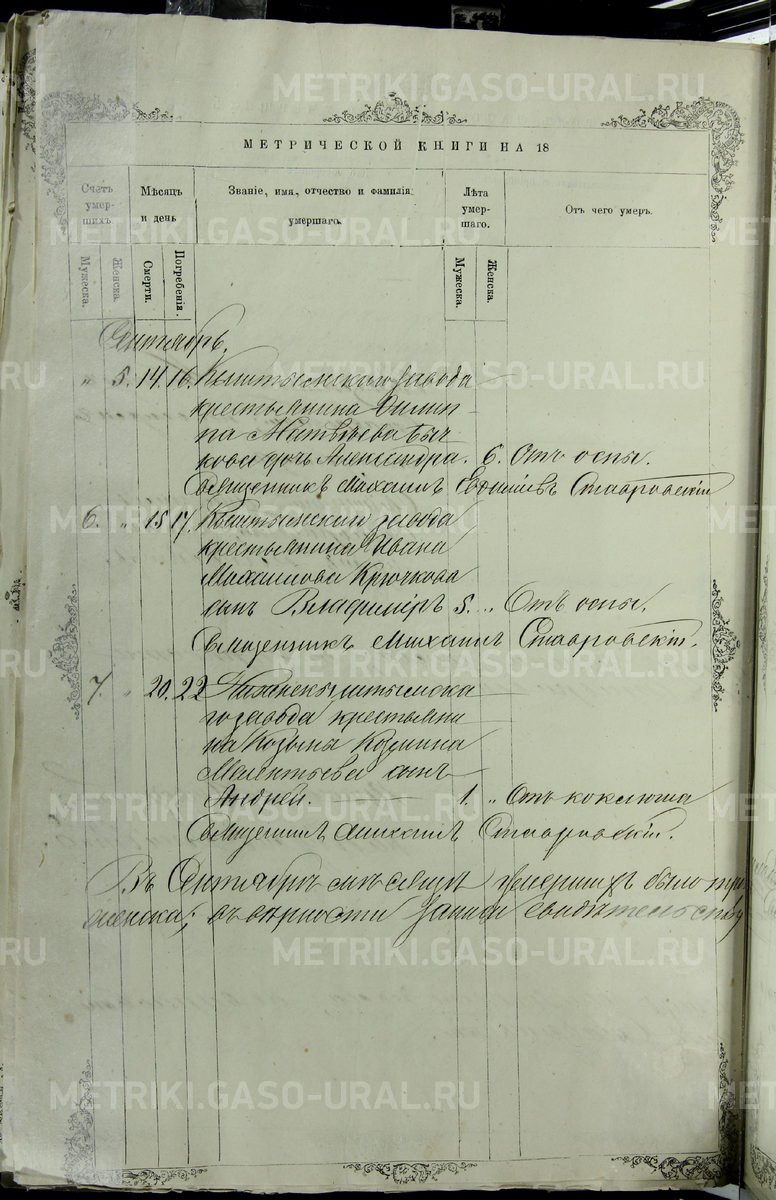 МЕТРИЧЕСКОЙ КНИГИ НА 18
Счетъ умерших.
Мѣсяцъ и день
Званіе, имя, отчество и фамилія умершаго.
Лѣта умершаго.
Отъ чего умеръ.
Мужеска.
Женска.
Смерти.
Погребенія.
Мужеска.
Женска.
Сентябрь.
„ 5. 14. 16. Кыштымскаго завода
крестьянина Филип
па Матвѣева Быч
кова дочь Александра. 6. Отъ оспы.
Священникъ Михаилъ Ставровскій
6. „ 15 17. Кыштымскаго завода
крестьянина Ивана
Михайлова Крючкова
сынъ Владиміръ 5. „ Отъ оспы.
Священникъ Михаилъ Ставровскій.
7. „ 20. 22 завода крестьяни
на Козьмина
сынъ
Андрей. 1. „ Отъ коклюша
Священникъ Михаилъ Ставровскій.
Въ Сентябрѣ мѣсяцѣ умершихъ было
въ вѣрности записи
METRIKI.GASO-URAL.RU